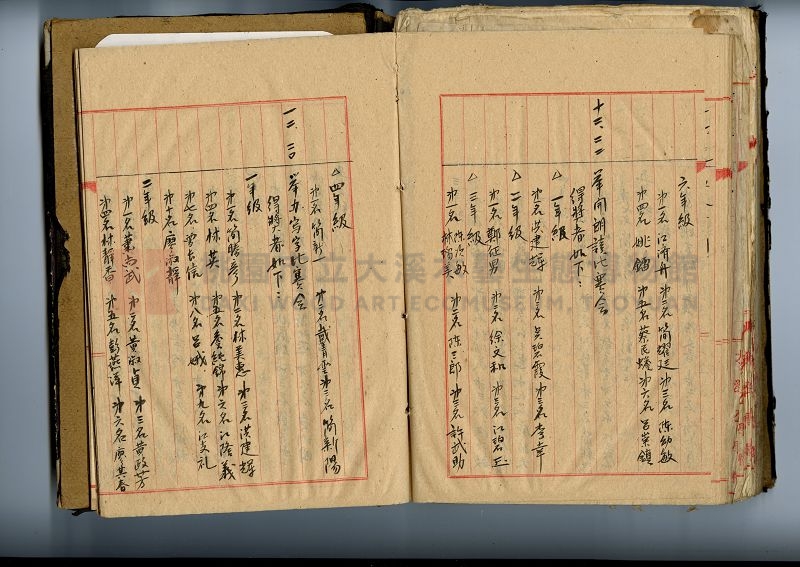 六年級
第一名 江濟舟 第二名 簡耀廷 第三名 陳幼敏
第四名 姚鐳 第五名 蔡民雄 第六名 呂崇鎮
十二.二二 舉開朗讀比賽会
得獎者如下:
△一年級
第一名 洪建輝 第二名 吳碧霞 第三名 李幸
△二年級
第一名 鄭征男 第二名 徐文和 第三名 江碧玉
△三年級
第一名 陳幼敏 林陽美 第二名 陳三郎 第三名 許武助
△四年級
第一名 簡彰一 第二名 戴青雲 第三名 簡新陽
一二.三〇 举办写字比賽会
得獎者如下
一年級
第一名 簡勝彥 第二名 林美惠 第三名 洪建輝
第四名 林英 第五名 李純錦 第六名 江隆義
第七名 第八名 呂娥 第九名 江文礼
第十名 廖淑靜
二年級
第一名 葉尚武 第二名 黃淑貞 第三名 黃政芳
第四名 林靜香 第五名 彭燕萍 第六名 廖英春
桃園市立大溪木藝生態博物館
DAXI WOOD ART ECOMUSEUM, TAOYUAN